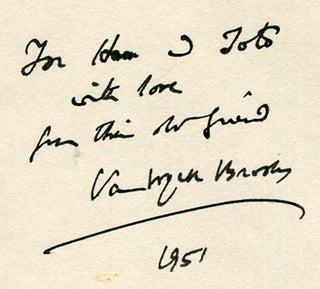 For Ham & Toto
with love
from their old friend
Van Wyck Brooks
1951